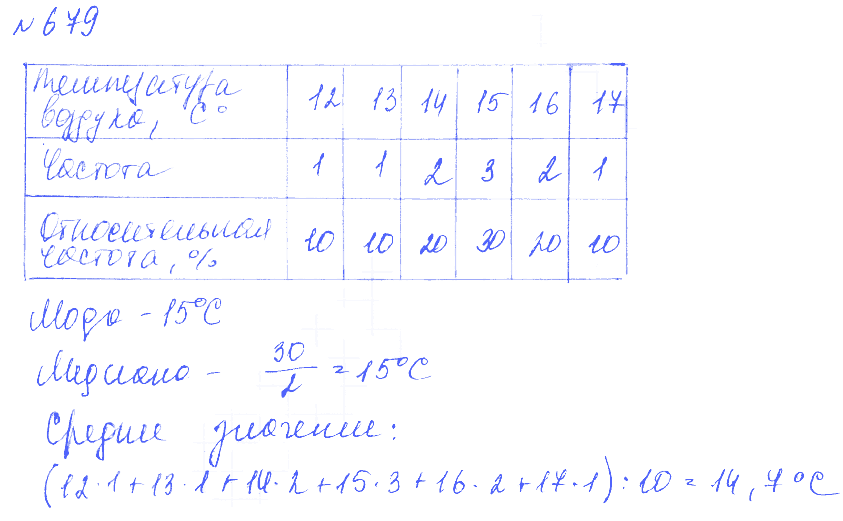 №679
Температура воздуха, C° 12 13 14 15 16 17
Частота 1 1 2 3 2 1
Относительная частота, % 10 10 20 30 20 10
Мода - 15°C
Медиана - 30/2 = 15°C
Среднее значение:
(12·1+13·1+14·2+15·3+16·2+17·1):10=14,7°C